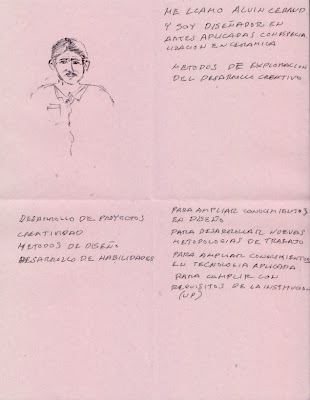 ME LLAMO ALVIN CERRUD
Y SOY DISEÑADOR EN
ARTES APLICADAS CON ESPECIA
LIZACION EN CERAMICA
METODOS DE EXPLORACION
DEL DESARROLLO CREATIVO
DESARROLLO DE PROYECTOS
CREATIVIDAD
METODOS DE DISEÑO
DESARROLLO DE HABILIDADES
PARA AMPLIAR CONOCIMIENTOS
EN DISEÑO
PARA DESARROLLAR NUEVAS
METODOLOGIAS DE TRABAJO
PARA AMPLIAR CONOCIMIENTOS
EN TECNOLOGIA APLICADA
PARA CUMPLIR CON
REQUISITOS DE LA INSTITUCION
(UP)